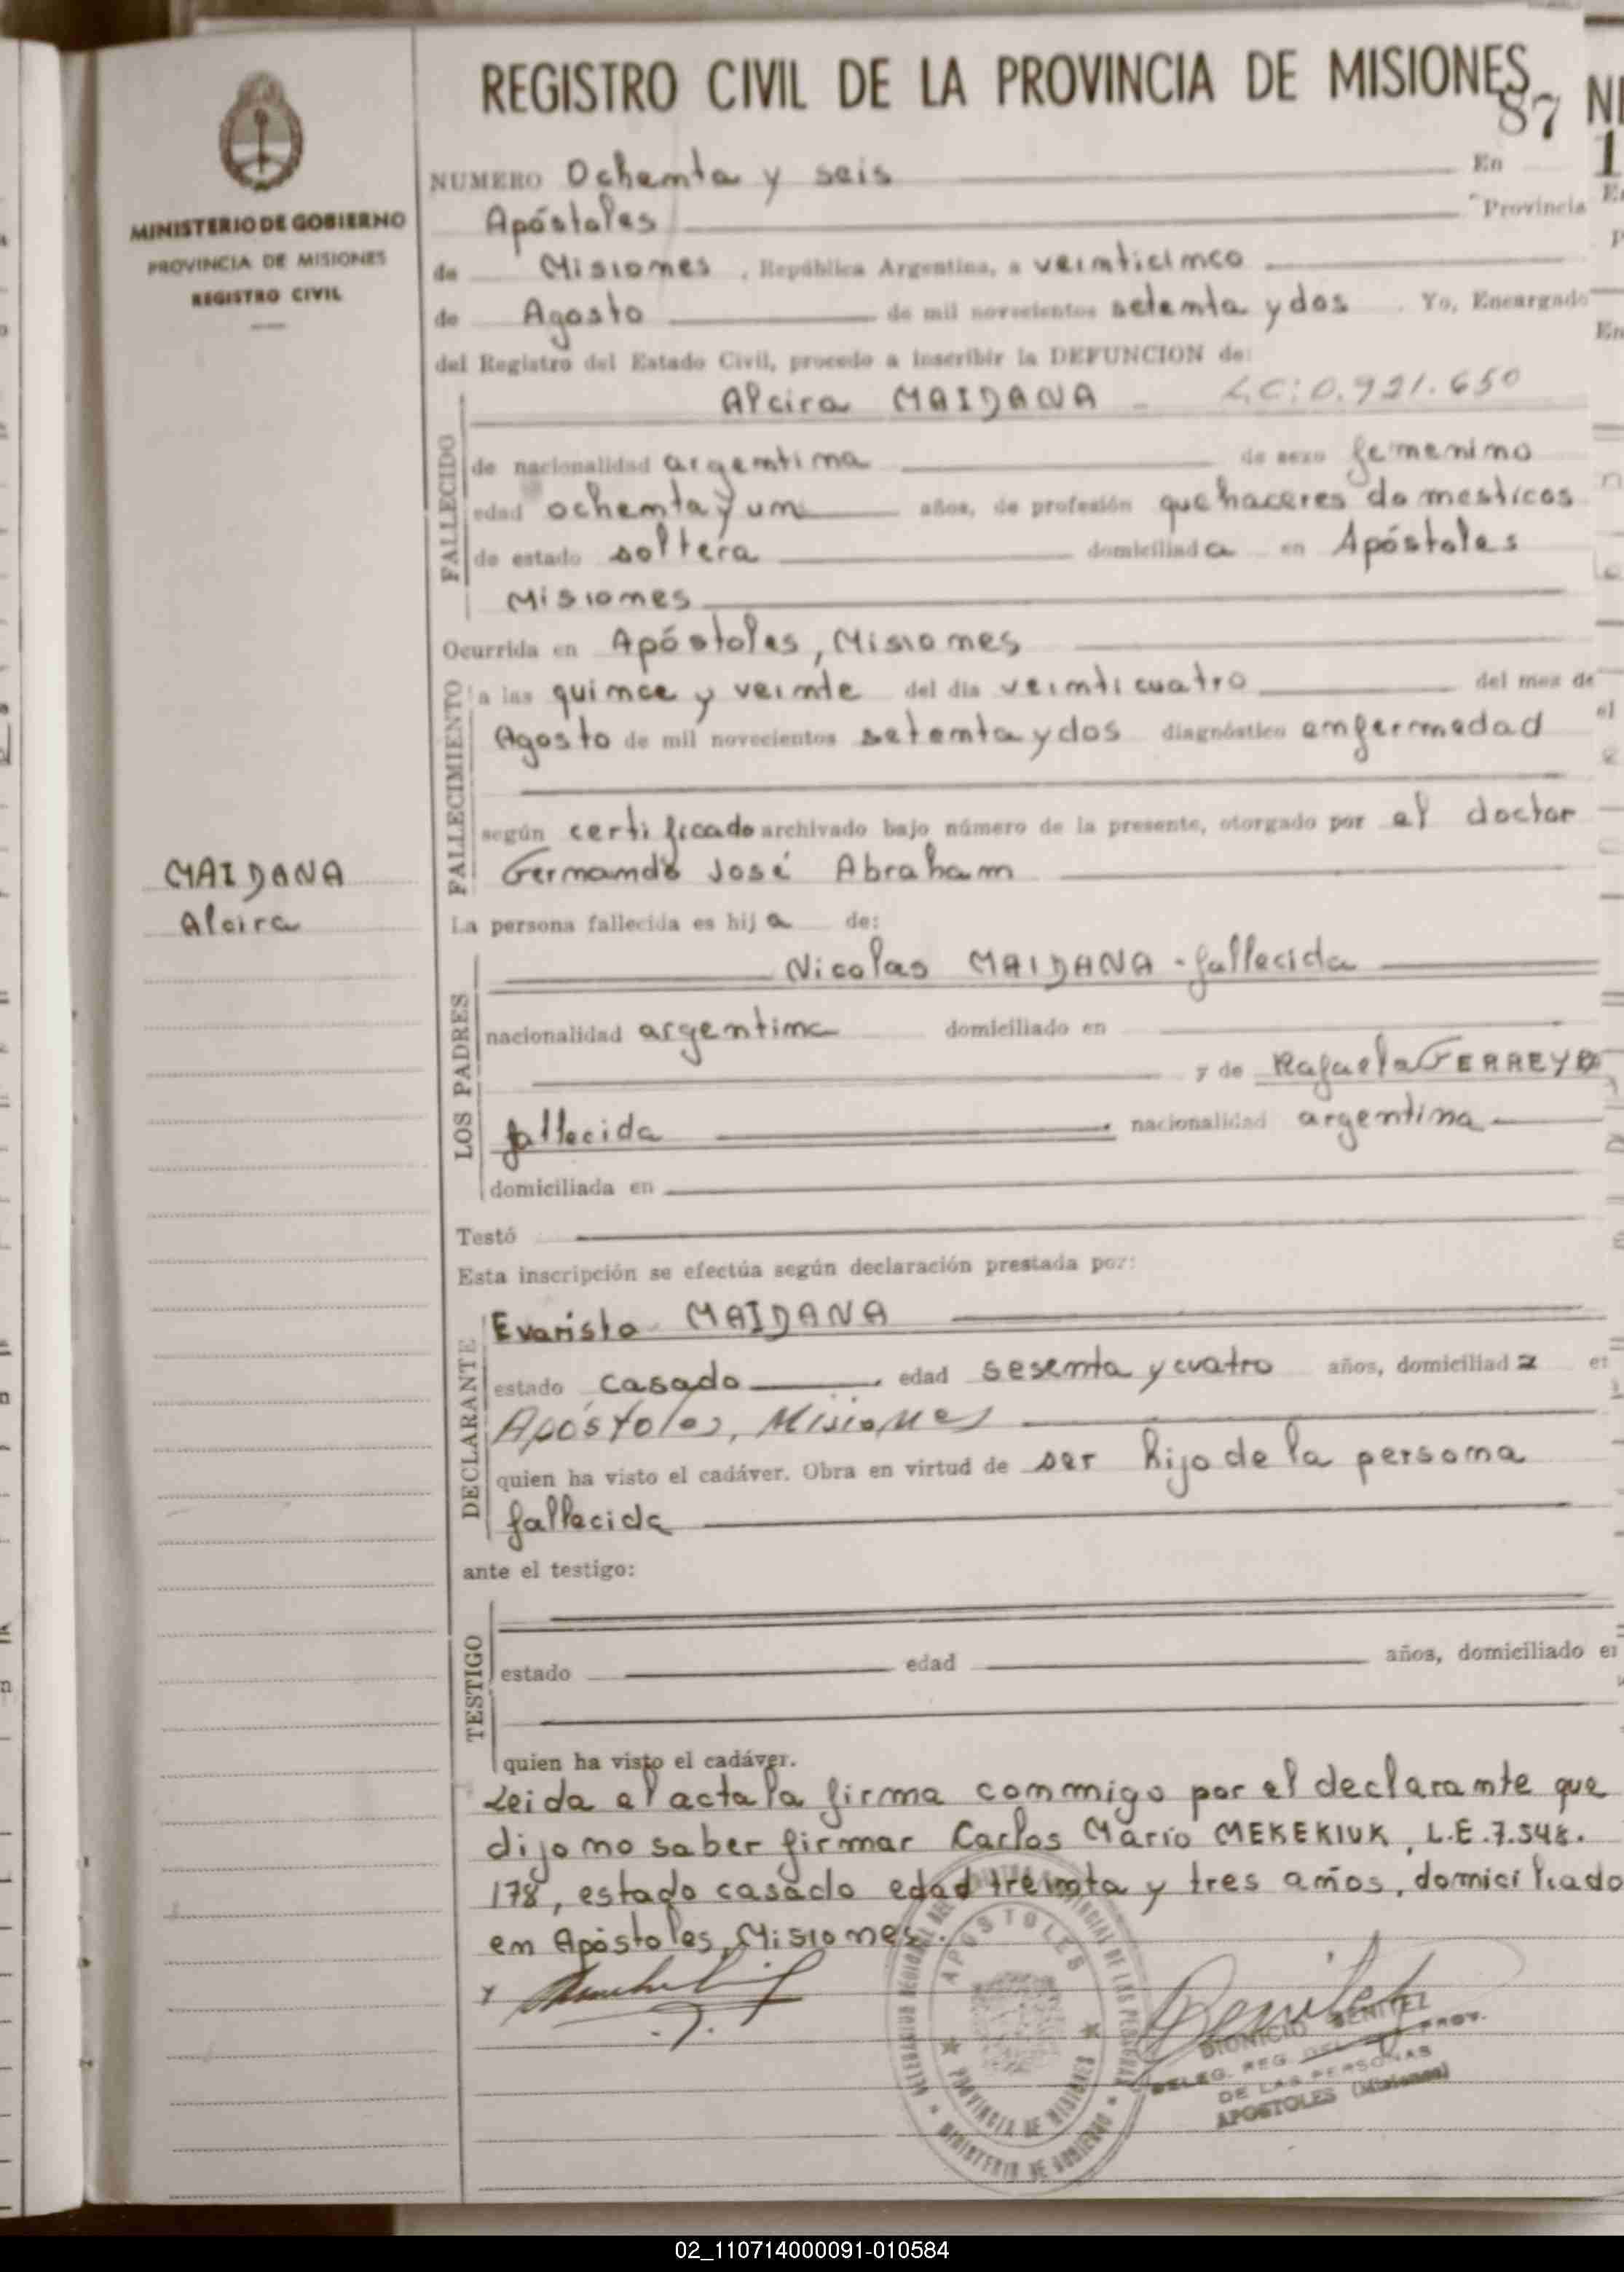 REGISTRO CIVIL DE LA PROVINCIA DE MISIONES
87
MINISTERIO DE GOBIERNO
PROVINCIA DE MISIONES
REGISTRO CIVIL
NUMERO Ochenta y seis En
Apóstoles Provincia
de Misiones, República Argentina, a veinticinco
de Agosto de mil novecientos setenta y dos. Yo, Encargado
del Registro del Estado Civil, procedo a inscribir la DEFUNCION de:
Alcira MAIDANA - L.C: 0.921.650
FALLECIDO
de nacionalidad argentina de sexo femenino
edad ochenta y un años, de profesión quehaceres domesticos
de estado soltera domiciliada en Apóstoles
Misiones
Ocurrida en Apóstoles, Misiones
FALLECIMIENTO
a las quince y veinte del día veinticuatro del mes de
Agosto de mil novecientos setenta y dos diagnóstico enfermedad
según certificado archivado bajo número de la presente, otorgado por el doctor
José Abraham
MAIDANA
Alcira
La persona fallecida es hija de:
LOS PADRES
Nicolas MAIDANA - fallecida
nacionalidad argentina domiciliado en
y de Rafaela FERREYRA
fallecida nacionalidad argentina
domiciliada en
Testó
Esta inscripción se efectúa según declaración prestada por:
DECLARANTE
Evaristo MAIDANA
estado casado edad sesenta y cuatro años, domiciliad
Apóstoles, Misiones
quien ha visto el cadáver. Obra en virtud de ser hijo de la persona
fallecida
ante el testigo:
TESTIGO
estado edad años, domiciliado en
quien ha visto el cadáver.
Leida el acta la firma conmigo por el declarante que
dijo no saber firmar Carlos Mario MEKEKIUK, L.E.7.548.
178, estado casado edad treinta y tres años, domiciliado
en Apóstoles, Misiones.
APOSTOLES
PROVINCIA DE MISIONES
MINISTERIO DE GOBIERNO
Benitez
DIONICIO BENITEZ
DELEG. REG. DEL PROV.
DE LAS PERSONAS
APOSTOLES (Misiones)
02_110714000091-010584